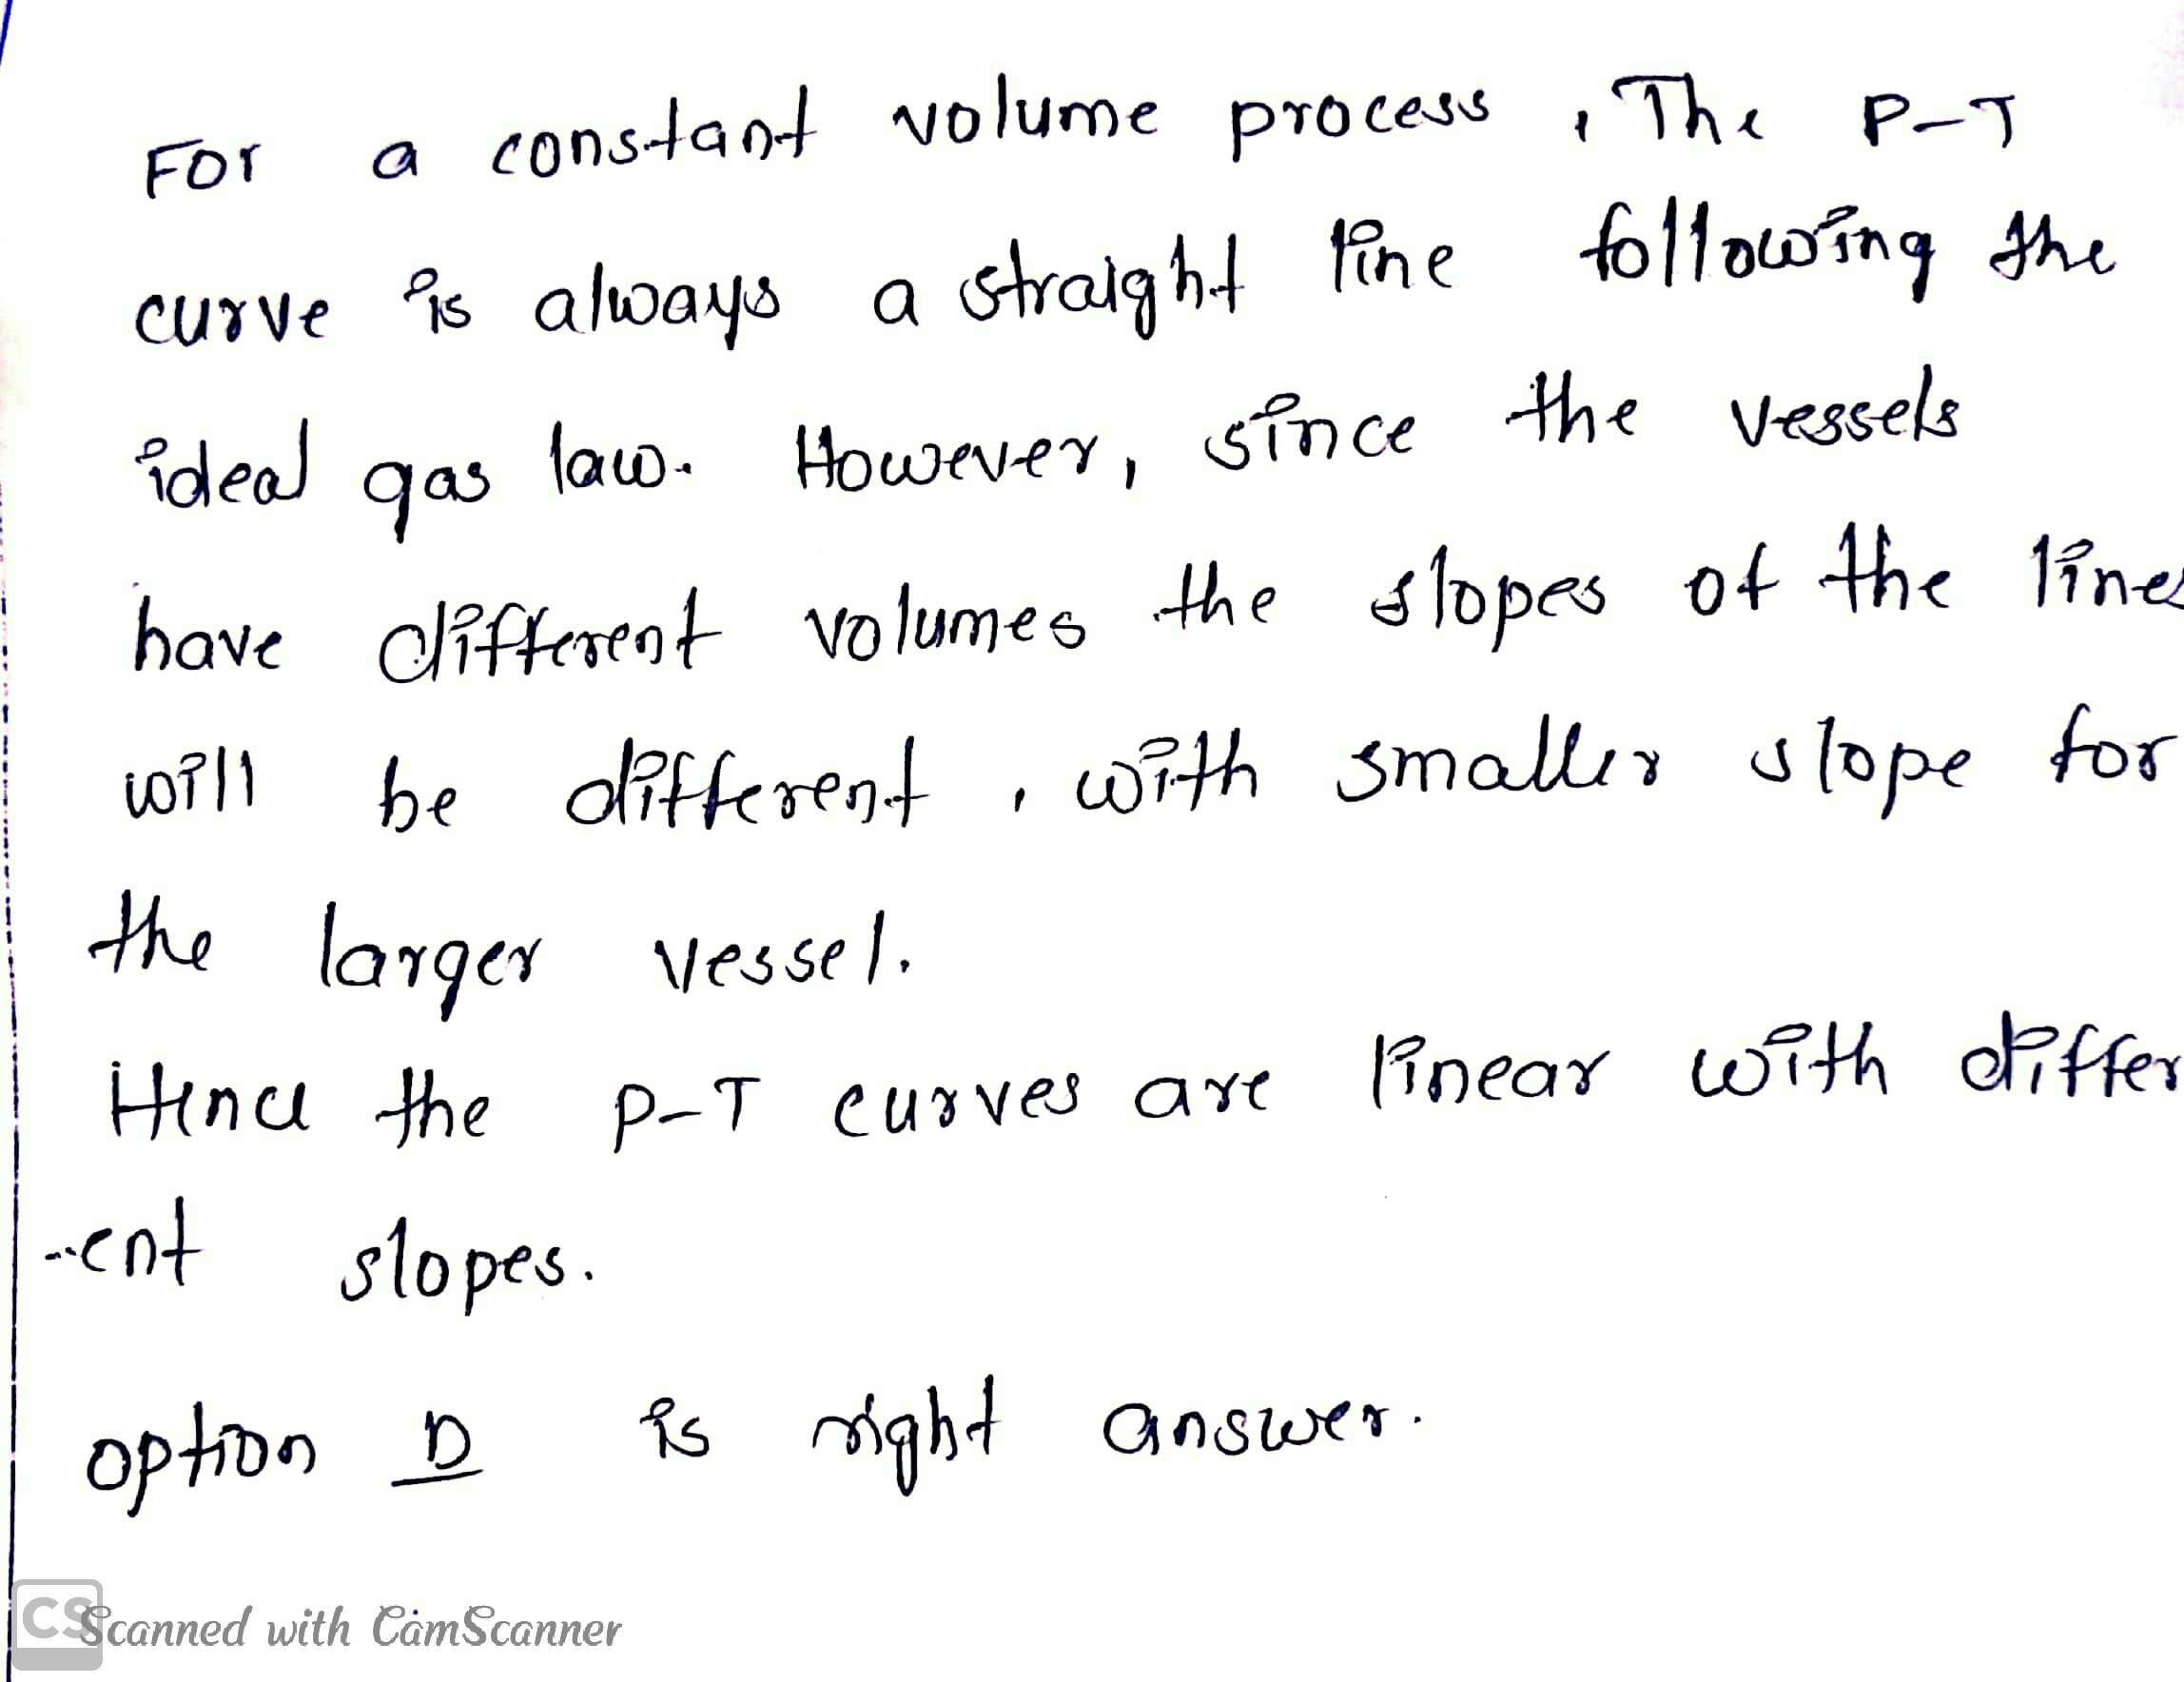 For a constant volume process, The P-T
curve is always a straight line following the
ideal gas law. However, since the vessels
have different volumes the slopes of the lines
will be different, with smaller slope for
the larger vessel.
Hence the P-T curves are linear with differ
-ent slopes.
option D is right answer.
CS Scanned with CamScanner